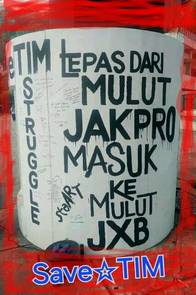 eTIM
STRUGGLE
LEPAS DARI
MULUT
JAKPRO
MASUK
KE
MULUT
JXB
Save☆TIM